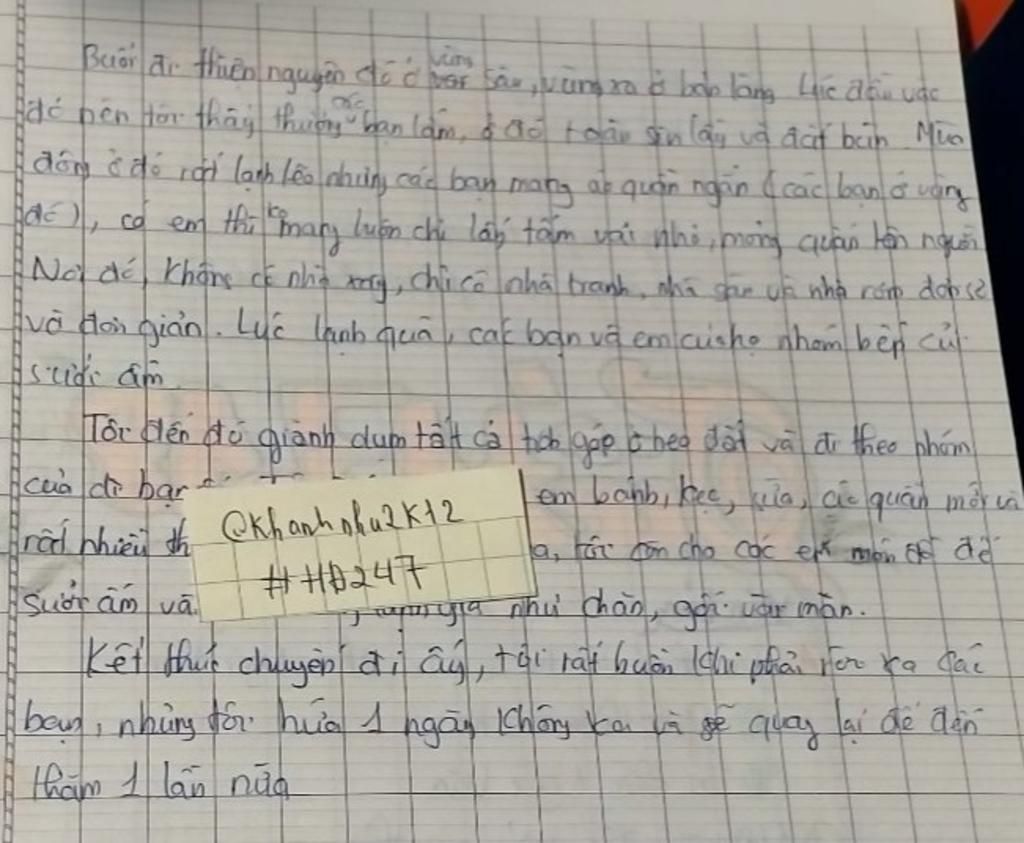 Buổi đi thiện nguyện đó ở vùng sâu, vùng xa ở bản làng. Lúc đến
đó nên tôi thấy thương các bạn lắm, ở đó toàn sìn lầy và đất bùn. Mùa
đông ở đó rất lạnh lẽo nhưng các bạn mang áo quần ngắn (các bạn ở vùng
đó), có em thì ko mang luôn chỉ lấy tấm vải nhỏ, mỏng quấn lên người
Nơi đó, không có nhà, chỉ có nhà tranh, nhà sàn và nhà rơm
và đơn giản. Lúc lạnh quá, các bạn và em của họ nhóm bếp củi
sưởi ấm
Tôi đến đó giành dụm tất cả góp heo đất và đi theo nhóm
của đi bạn em bánh, kẹo, sữa, các quần mới và
rất nhiều th a, tôi còn cho các em món để
sưởi ấm và như chăn, gối và màn.
Kết thúc chuyến đi ấy, tôi rất buồn khi phải rời xa các
bạn, nhưng tôi hứa 1 ngày không xa là sẽ quay lại để đến
thăm 1 lần nữa
@Khanhnhu2K12
#HD247